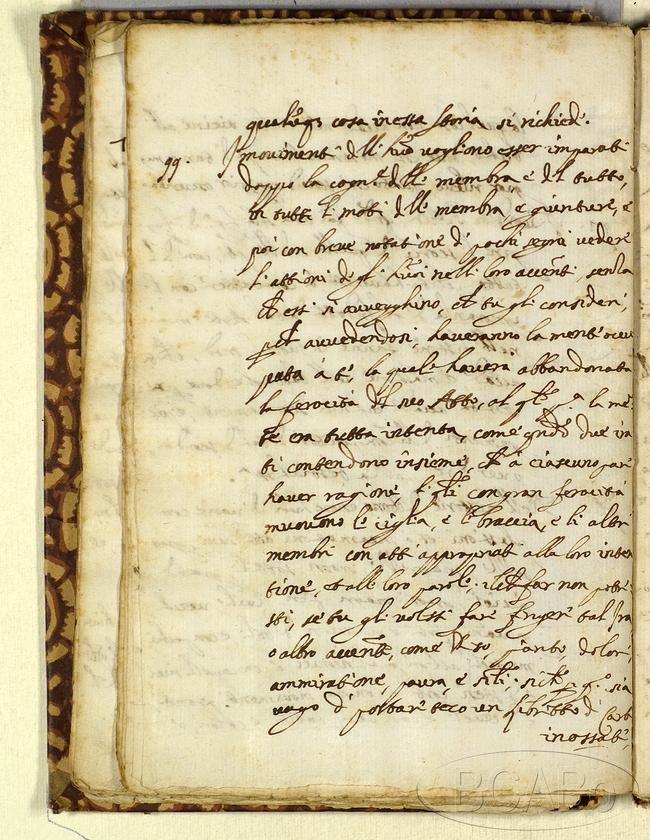 qualche cosa in essa storia si richiede.
99. I movimenti dell'huo vogliono esser imparati
doppo la cogn.e delle membra e del tutto,
in tutti li moti delle membra, e giunture, e
poi con breve notatione di pochi segni vedere
l'attioni degli huoi nelli loro accenti, senza
ch'essi si avvegghino, che tu gli consideri,
pche avvedendosi, haveranno la mente occu
pata à te, la quale haverà abbandonata
la ferocità del suo Atto, al qle pa la mē
te era tutta intenta, come qndo due ira
ti contendono insieme, ch'à ciascuno pare
haver ragione, li qli con gran ferocità
muovono le ciglia, e le braccia, e li altri
membri con atti appropriati alla loro inten
tione, et alle loro parole; ilche far non potre
sti, se tu gli volsti fare finger tal Ira
o altro accente, come riso, pianto, dolore,
ammiratione, paura, e sili; siche p qo sia
vago di portare teco un libretto di Cart
inossate,
BCABo